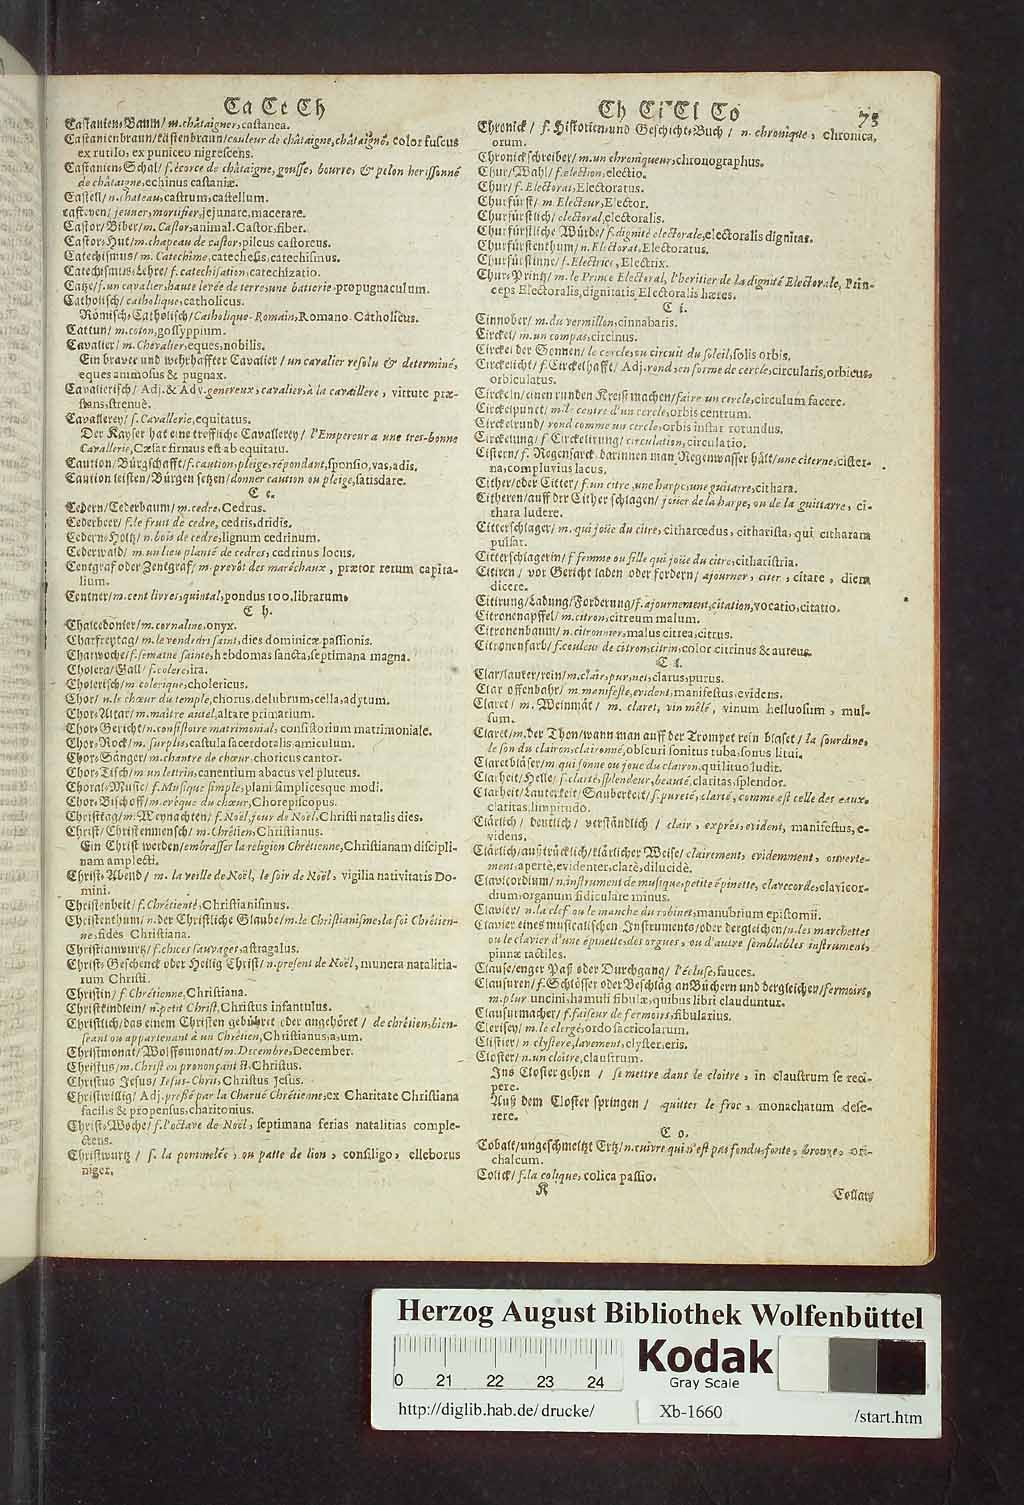 Ca Ce Ch
Castanien-Baum/ m. châtaigner, castanea.
Castanienbraun/ kästenbraun/ couleur de châtaigne, châtaigné, color fuscus
ex rutilo, ex puniceo nigrescens.
Castanien-Schal/ f. écorce de châtaigne, gousse, bourre, & pelon herissonné
de châtaigne, echinus castaniæ.
Castell/ n. chateau, castrum, castellum.
casteyen/ jeuner, mortifier, jejunare, macerare.
Castor/ Biber/ m. Castor, animal. Castor, fiber.
Castor-Hut/ m. chapeau de castor, pileus castoreus.
Catechismus/ m. Catechime, catechesis, catechismus.
Catechismus-Lehre/ f. catechisation, catechizatio.
Catze/ f. un cavalier, haute levée de terre, une batterie, propugnaculum.
Catholisch/ catholique, catholicus.
Römisch-Catholisch/ Catholique-Romain, Romano Catholicus.
Cattun/ m. coton, gossyppium.
Cavalier/ m. Chevalier, eques, nobilis.
Ein braver und wehrhaffter Cavalier/ un cavalier resolu & determiné,
eques animosus & pugnax.
Cavalierisch/ Adj. & Adv. genereux, cavalier, à la cavaliere, virtute præ-
stans, strenuè.
Cavallerey/ f. Cavallerie, equitatus.
Der Kayser hat eine treffliche Cavallerey/ l'Empereur a une tres-bonne
Cavallerie, Cæsar firmus est ab equitatu.
Caution/ Bürgschafft/ f. caution, pleige, répondant, sponsio, vas, adis.
Caution leisten/ Bürgen setzen/ donner caution ou pleige, satisdare.
C e.
Cedern/ Cederbaum/ m. cedre, Cedrus.
Cederbeer/ f. le fruit de cedre, cedris, dridis.
Cedern-Holtz/ n. bois de cedre, lignum cedrinum.
Cederwald/ m. un lieu planté de cedres, cedrinus locus.
Centgraf oder Zentgraf/ m. prevôt des maréchaux, prætor rerum capita-
lium.
Centner/ m. cent livres, quintal, pondus 100. librarum.
C h.
Chalcedonier/ m. cornaline, onyx.
Charfreytag/ m. le vendredi saint, dies dominicæ passionis.
Charwoche/ f. semaine sainte, hebdomas sancta, septimana magna.
Cholera/ Gall/ f. colere, ira.
Cholerisch/ m. colerique, cholericus.
Chor/ n. le chœur du temple, chorus, delubrum, cella, adytum.
Chor-Altar/ m. maître autel, altare primarium.
Chor-Gericht/ n. consistoire matrimonial, consistorium matrimoniale.
Chor-Rock/ m. surplis, castula sacerdotalis, amiculum.
Chor-Sänger/ m. chantre de chœur, choricus cantor.
Chor-Tisch/ m. un lettrin, canentium abacus vel pluteus.
Choral-Music/ f. Musique simple, plani simplicesque modi.
Chor-Bischoff/ m. evêque du chœur, Chorepiscopus.
Christtag/ m. Weynachten/ f. Noël, jour de Noël, Christi natalis dies.
Christ/ Christenmensch/ m. Chrêtien, Christianus.
Ein Christ werden/ embrasser la religion Chrétienne, Christianam discipli-
nam amplecti.
Christ-Abend/ m. la veille de Noël, le soir de Noël, vigilia nativitatis Do-
mini.
Christenheit/ f. Chrétienté, Christianismus.
Christenthum/ n. der Christliche Glaube/ m. le Christianisme, la foi Chrétien-
ne, fides Christiana.
Christianwurtz/ f. chices sauvages, astragalus.
Christ-Geschenck oder Heilig Christ/ n. present de Noël, munera natalitia-
rum Christi.
Christin/ f. Chrétienne, Christiana.
Christkindlein/ n. petit Christ, Christus infantulus.
Christlich/ das einem Christen gebühret oder angehöret/ de chrétien, bien-
seant ou appartenant à un Chrétien, Christianus, a, um.
Christmonat/ Wolffsmonat/ m. Decembre, December.
Christus/ m. Christ en prononçant st, Christus.
Christus Jesus/ Jesus-Christ, Christus Jesus.
Christwillig/ Adj. pressé par la Charué Chrétienne, ex Charitate Christiana
facilis & propensus, charitonius.
Christ-Woche/ f. l'octave de Noël, septimana ferias natalitias comple-
ctens.
Christwurtz/ f. la pommelée, ou patte de lion, consiligo, elleborus
niger.
Ch Ci Cl Co 75
Chronick/ f. Historien- und Geschicht-Buch/ n. chronique, chronica,
orum.
Chronickschreiber/ m. un chroniqueur, chronographus.
Chur/ Wahl/ f. election, electio.
Chur/ f. Electorat, Electoratus.
Churfürst/ m. Electeur, Elector.
Churfürstlich/ electoral, electoralis.
Churfürstliche Würde/ f. dignité electorale, electoralis dignitas.
Churfürstenthum/ n. Electorat, Electoratus.
Churfürstinne/ f. Electrice, Electrix.
Chur-Printz/ m. le Prince Electoral, l'heritier de la dignité Electorale, Prin-
ceps Electoralis, dignitatis Electoralis hæres.
C i.
Cinnober/ m. du vermillon, cinnabaris.
Circkel/ m. un compas, circinus.
Circkel der Sonnen/ le cercle, ou circuit du soleil, solis orbis.
Circkelicht/ f. Circkelhafft/ Adj. rond, en forme de cercle, circularis, orbicus,
orbiculatus.
Circkeln/ einen runden Kreiß machen/ faire un cercle, circulum facere.
Circkelpunct/ m. le centre d'un cercle, orbis centrum.
Circkelrund/ rond comme un cercle, orbis instar rotundus.
Circkelung/ f. Circkelirung/ circulation, circulatio.
Cistern/ f. Regensarck darinnen man Regenwasser hält/ une citerne, cister-
na, compluvius lacus.
Cither/ oder Citter/ f. un citre, une harpe, une guitarre, cithara.
Citheren/ auff der Cither schlagen/ joüer de la harpe, ou de la guittarre, ci-
thara ludere.
Citterschlager/ m. qui joüe du citre, citharœdus, citharista, qui citharam
pulsat.
Citterschlagerin/ f. femme ou fille qui joüe du citre, citharistria.
Citiren/ vor Gericht laden oder fordern/ ajourner, citer, citare, diem
dicere.
Citirung/ Ladung/ Forderung/ f. ajournement, citation, vocatio, citatio.
Citronenapffel/ m. citron, citreum malum.
Citronenbaum/ n. citronnier, malus citrea, citrus.
Citronenfarb/ f. couleur de citron, citrin, color citrinus & aureus.
C l.
Clar/ lauter/ rein/ m. clair, pur, net, clarus, purus.
Clar offenbahr/ m. manifeste, evident, manifestus, evidens.
Claret/ m. Weinmät/ m. claret, vin mêlé, vinum helluosum, mul-
sum.
Claret/ m. der Thon/ wann man auff der Trompet rein blaset/ la sourdine,
le son du clairon, claironné, obscuri sonitus tuba, sonus litui.
Claretbläser/ m. qui sonne ou joue du clairon, qui lituo ludit.
Clarheit/ Helle/ f. clarté, splendeur, beauté, claritas, splendor.
Clarheit/ Lauterkeit/ Sauberkeit/ f. pureté, clarté, comme est celle des eaux,
claritas, limpitudo.
Clärlich/ deutlich/ verständlich/ clair, exprès, evident, manifestus, e-
videns.
Clärlich/ außtrücklich/ klärlicher Weise/ clairement, evidemment, ouverte-
ment, apertè, evidenter, clarè, dilucidè.
Clavicordium/ n. instrument de musique, petite épinette, clavecorde, clavicor-
dium, organum fidiculare minus.
Clavier/ n. la clef ou le manche du robinet, manubrium epistomii.
Clavier eines musicalischen Instruments/ oder dergleichen/ n. les marchettes
ou le clavier d'une épinette, des orgues, ou d'autre semblables instrument,
pinnæ tactiles.
Clause/ enger Paß oder Durchgang/ l'écluse, fauces.
Clausuren/ f. Schlösser oder Beschläg an Büchern und dergleichen/ fermoirs,
m. plur. uncini, hamuli fibulæ, quibus libri clauduntur.
Clausurmacher/ f. faiseur de fermoirs, fibularius.
Clerisey/ m. le clergé, ordo sacricolarum.
Clistier/ n. clystere, lavement, clyster, eris.
Closter/ n. un cloître, claustrum.
Ins Closter gehen/ se mettre dans le cloître, in claustrum se reci-
pere.
Auß dem Closter springen/ quitter le froc, monachatum dese-
rere.
C o.
Cobalt/ ungeschmeltzt Ertz/ n. cuivre qui n'est pas fondu, fonte, bronze, ori-
chalcum.
Colick/ f. la colique, colica passio.
K
Collar
Herzog August Bibliothek Wolfenbüttel
0 21 22 23 24
Kodak
Gray Scale
http://diglib.hab.de/drucke/ Xb-1660 /start.htm